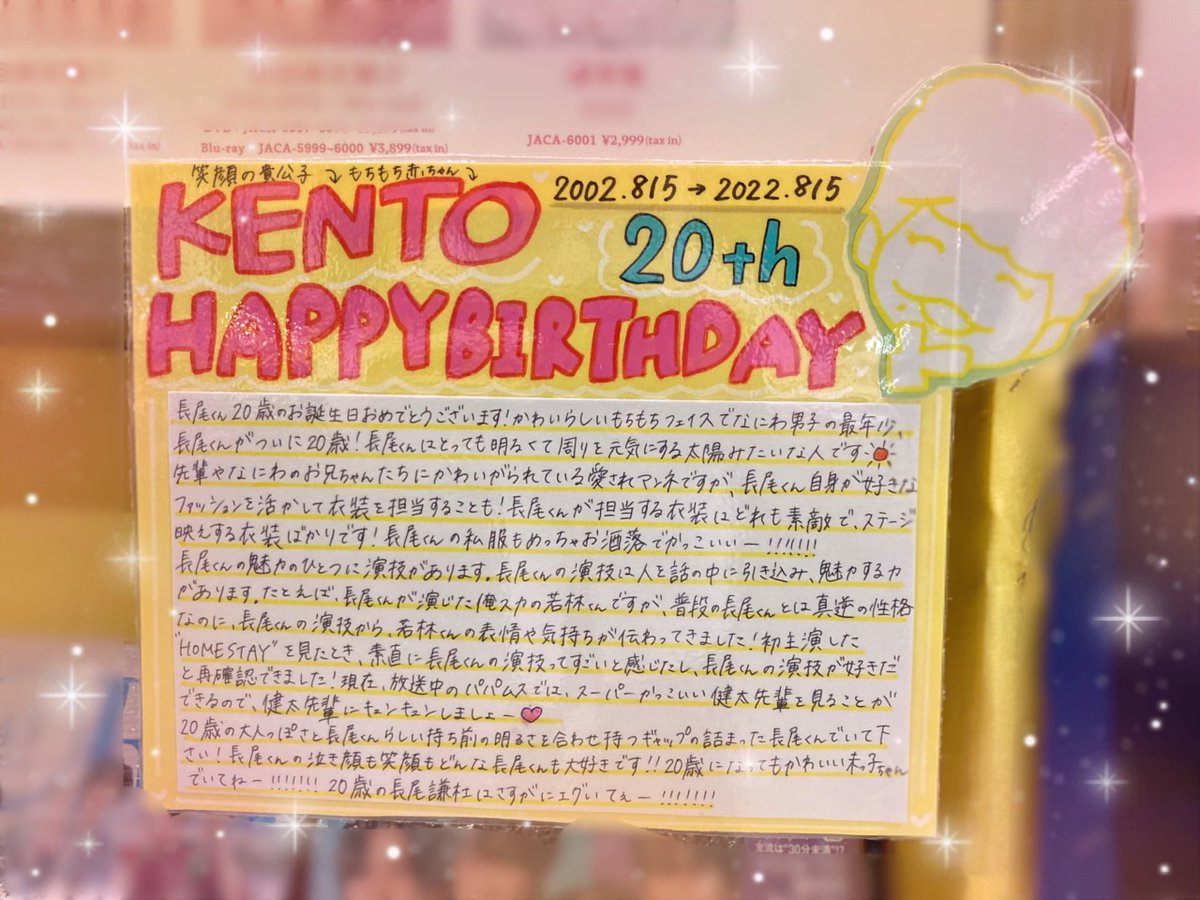 Blu-ray・JACA-5999~6000 ¥3,899(tax in)
JACA-6001 ¥2,999(tax in)
笑顔の貴公子 もちもち赤ちゃん
KENTO
2002.8/5→2022.8/5
20th
HAPPY BIRTHDAY
長尾くん20歳のお誕生日おめでとうございます!かわいらしいもちもちフェイスでなにわ男子の最年少、
長尾くんがついに20歳!長尾くんはとっても明るくて周りを元気にする太陽みたいな人です
先輩やなにわのお兄ちゃんたちにかわいがられている愛されアンネですが、長尾くん自身が好きな
ファッションを活かして衣装を担当することも!長尾くんが担当する衣装はどれも素敵で、ステージ
映えする衣装ばかりです!長尾くんの私服もめっちゃお洒落でかっこいいー!!!!!!!
長尾くんの魅力のひとつに演技があります。長尾くんの演技は人を話の中に引き込み、魅力する力
があります。たとえば、長尾くんが演じた俺スカの若林くんですが、普段の長尾くんとは真逆の性格
なのに、長尾くんの演技から、若林くんの表情や気持ちが伝わってきました!初主演した
"HOMESTAY"を見たとき、素直に長尾くんの演技ってすごいと感じたし、長尾くんの演技が好きだ
と再確認できました!現在、放送中のパパムスでは、スーパーかっこいい健太先輩を見ることが
できるので、健太先輩にキュンキュンしましょー
20歳の大人っぽさと長尾くんらしい持ち前の明るさを合わせ持つギャップの詰まった長尾くんでいて下
さい!長尾くんの泣き顔も笑顔もどんな長尾くんも大好きです!!20歳になってもかわいい末っ子ちゃん
でいてねー!!!!!!! 20歳の長尾謙杜はさすがにエグいてぇー!!!!!!!
主流は"30分未満"!?